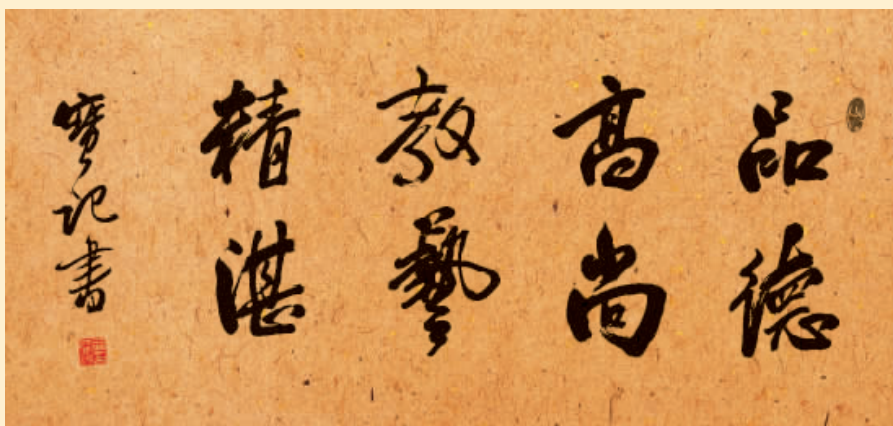 品德
高尚
教藝
精湛
寶記書